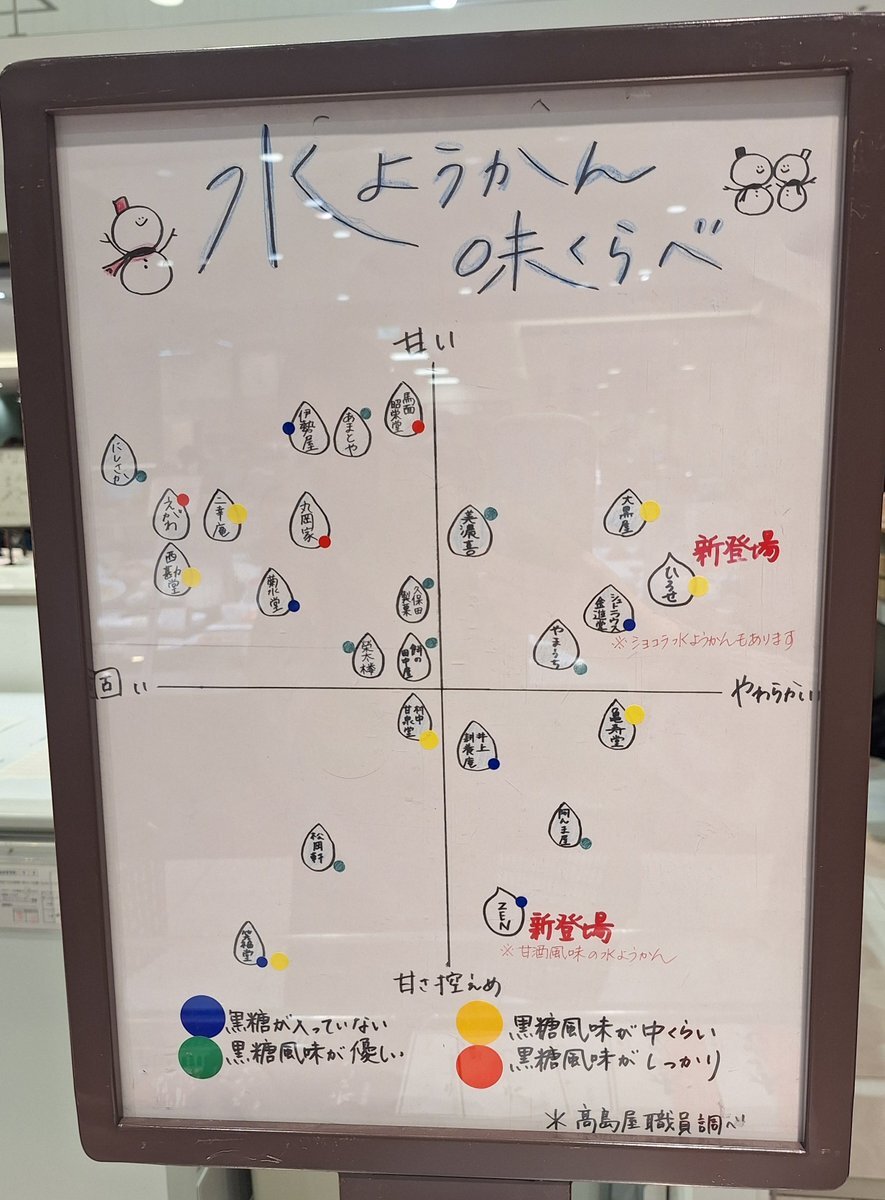 水ようかん
味くらべ
甘い
馬面
昭栄堂
伊勢屋
あまとや
にしさか
えがわ
二幸庵
丸岡家
美濃喜
大黒屋
新登場
西勘堂
ひろせ
菊水堂
久保田
製菓
シュトラウス
金進堂
※ショコラ水ようかんもあります
栄太棒
餅の
田中屋
やまうち
固い
やわらかい
村中
甘泉堂
亀寿堂
井上
耕養庵
松岡軒
阿んま屋
ZEN
新登場
※甘酒風味の水ようかん
笑福堂
甘さ控えめ
黒糖が入っていない
黒糖風味が中くらい
黒糖風味が優しい
黒糖風味がしっかり
＊高島屋職員調べ